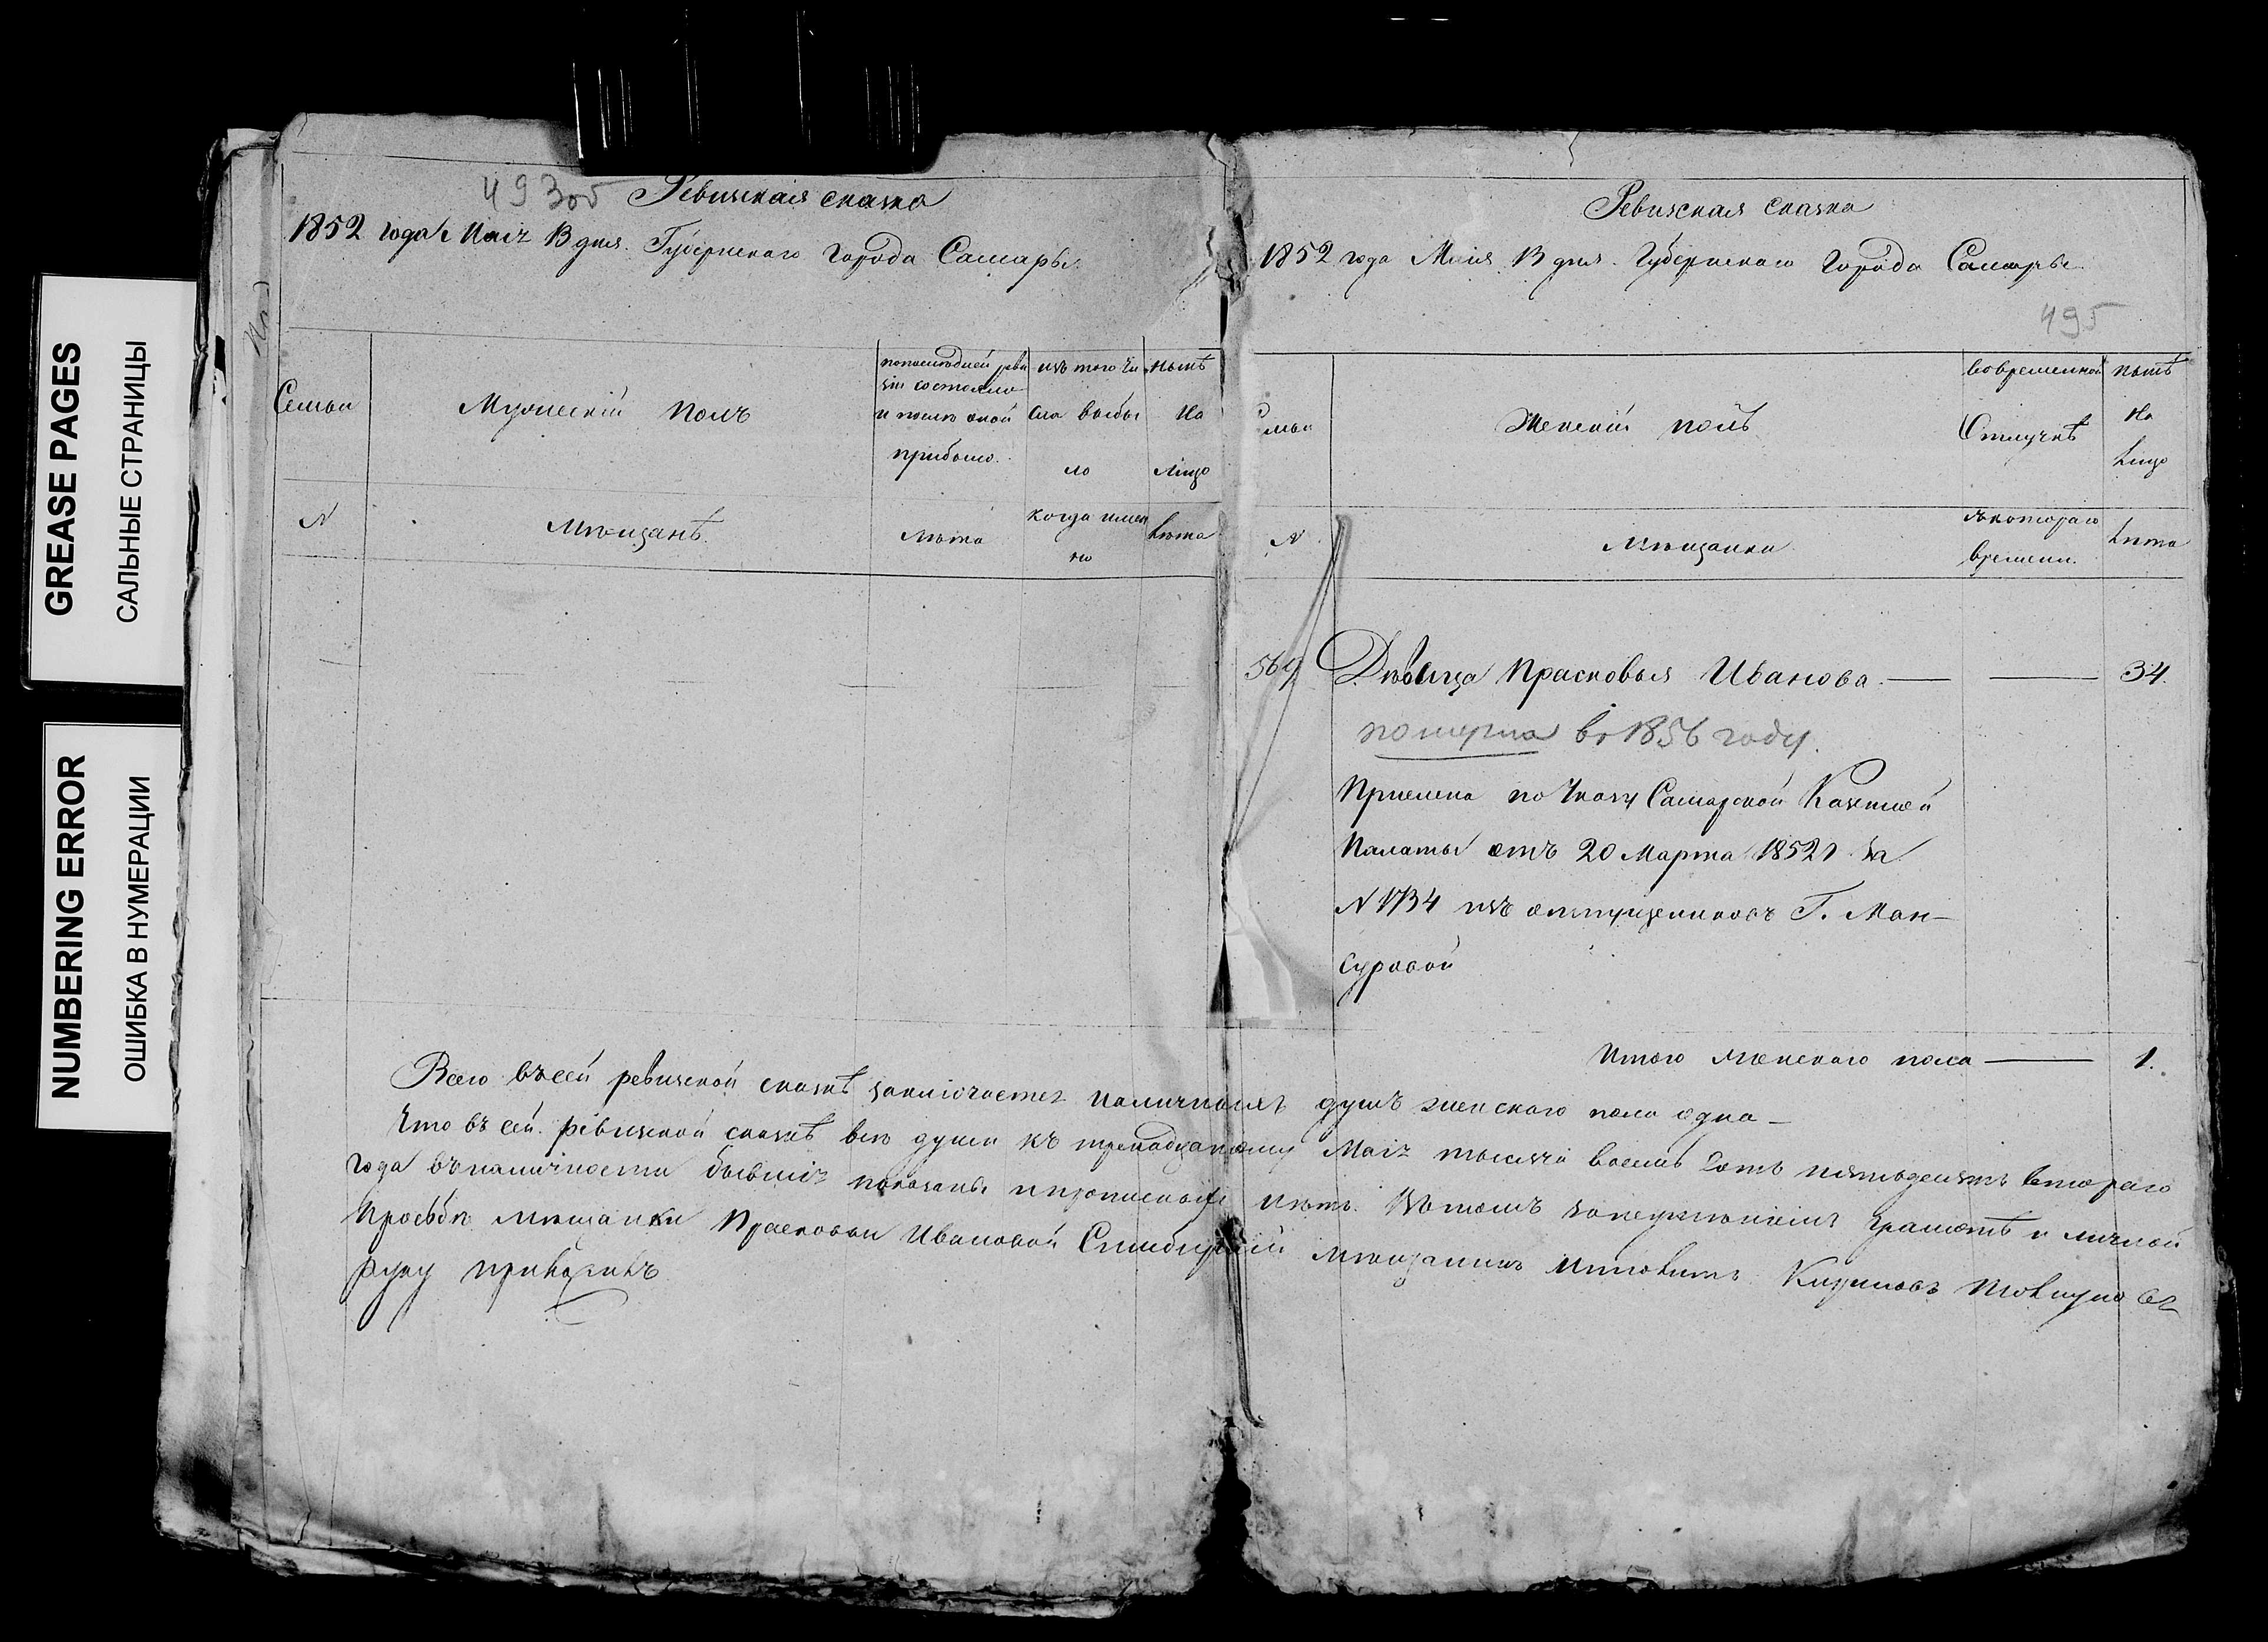 GREASE PAGES
САЛЬНЫЕ СТРАНИЦЫ
NUMBERING ERROR
ОШИБКА В НУМЕРАЦИИ
493об
Ревизская сказка
1852 года Маія 13 дня. Губернскаго Города Самары.
Семьи
Мужескій полъ
по последней реви
зіи состояло
и после оной
прибыло.
изъ того чи
сла выбы
ло
нынѣ
на
лицо
N
Мѣщанѣ.
Лѣта
когда имен
но
Лѣта
Ревизская Сказка
1852 года Маія 13 дня. Губернскаго Города Самары.
495
Семьи
Женскій полъ
Во временной
Отлучкѣ
нынѣ
на
Лицо
N
Мѣщанки
съ котораго
времени.
Лѣта
569
Дѣвица Прасковья Иванова — — 34.
померла въ 1856 году.
Причислена по Указу Самарской Казенной
Палаты отъ 20 Марта 1852 г. За
N 1734 изъ отпущенниковъ Г. Ман-
суровой
Итого женскаго пола — 1.
Всего въ сей ревизской сказкѣ заключается наличныхъ душъ женскаго пола одна —
Что въ сей ревизской сказкѣ все души къ тринадцатому Маія тысяча восемь сотъ пятьдесятъ втораго
года въ наличности бывшія показаны и прописныхъ нѣтъ. Въ томъ за неумѣніемъ Грамотѣ и личной
просьбѣ мѣщанки Прасковьи Ивановой Симбирскій мѣщанинъ
руку приложилъ